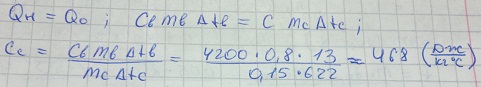 Qн = Qо ; Cв mв Δtв = C mc Δtc ;
Cc = Cв mв Δtв / mc Δtc = 4200 · 0,8 · 13 / 0,15 · 622 ≈ 468 (Дж/кг°C)